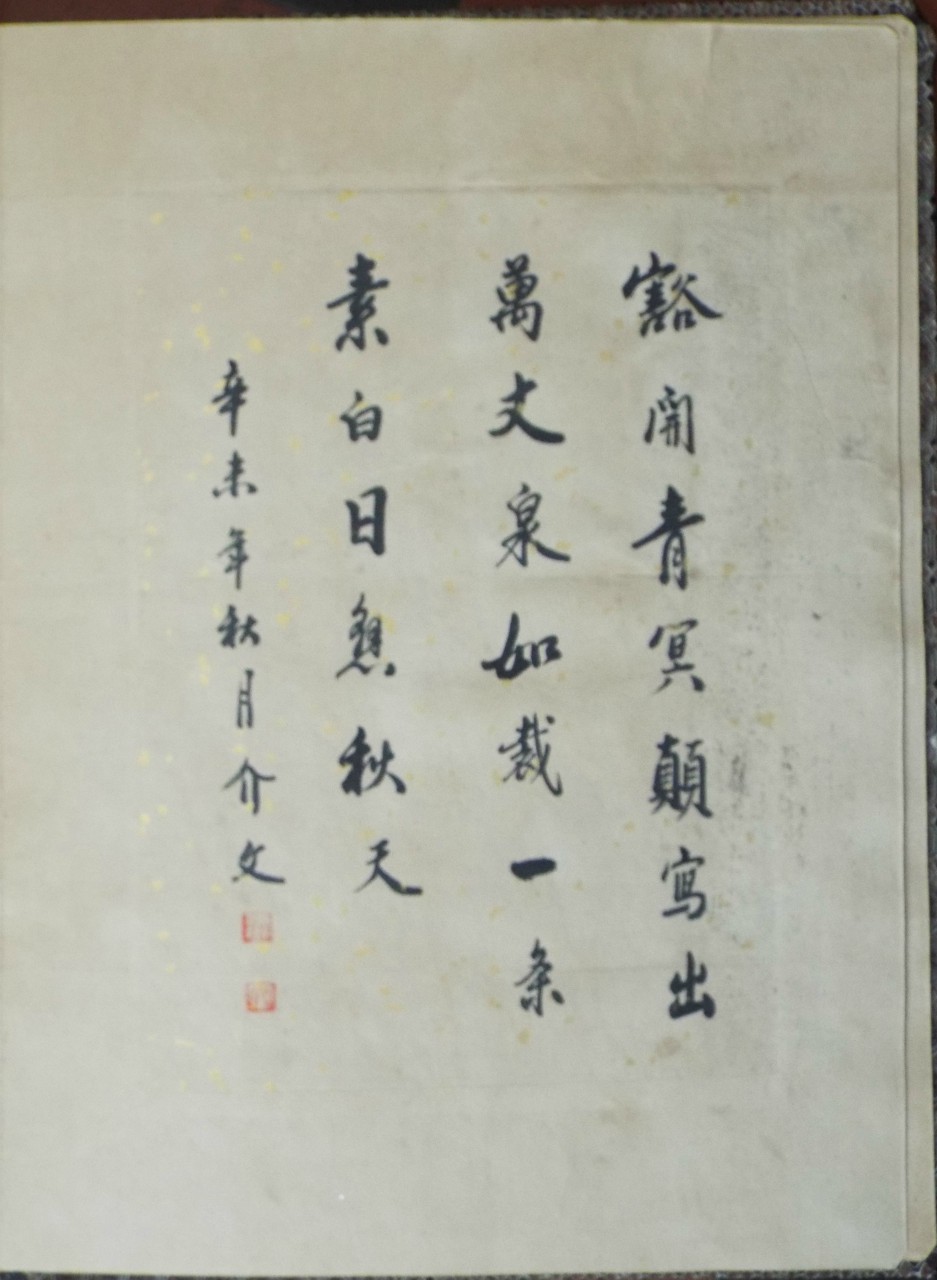 豁開青冥顛寫出
萬丈泉如裁一条
素白日懸秋天
辛未年秋月介文